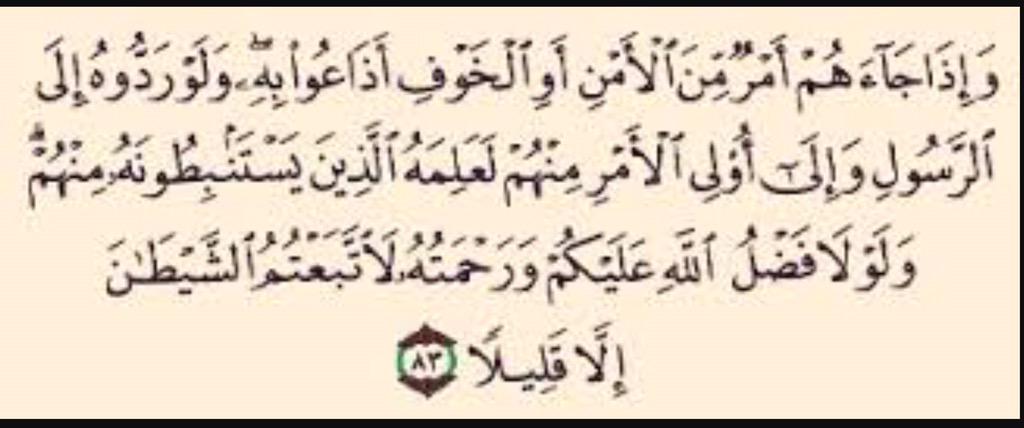 وَإِذَا جَآءَهُمْ أَمْرٌ مِّنَ ٱلْأَمْنِ أَوِ ٱلْخَوْفِ أَذَاعُوا۟ بِهِۦ ۖ وَلَوْ رَدُّوهُ إِلَى
ٱلرَّسُولِ وَإِلَىٰٓ أُو۟لِى ٱلْأَمْرِ مِنْهُمْ لَعَلِمَهُ ٱلَّذِينَ يَسْتَنۢبِطُونَهُۥ مِنْهُمْ ۗ
وَلَوْلَا فَضْلُ ٱللَّهِ عَلَيْكُمْ وَرَحْمَتُهُۥ لَٱتَّبَعْتُمُ ٱلشَّيْطَـٰنَ
إِلَّا قَلِيلًا ٨٣